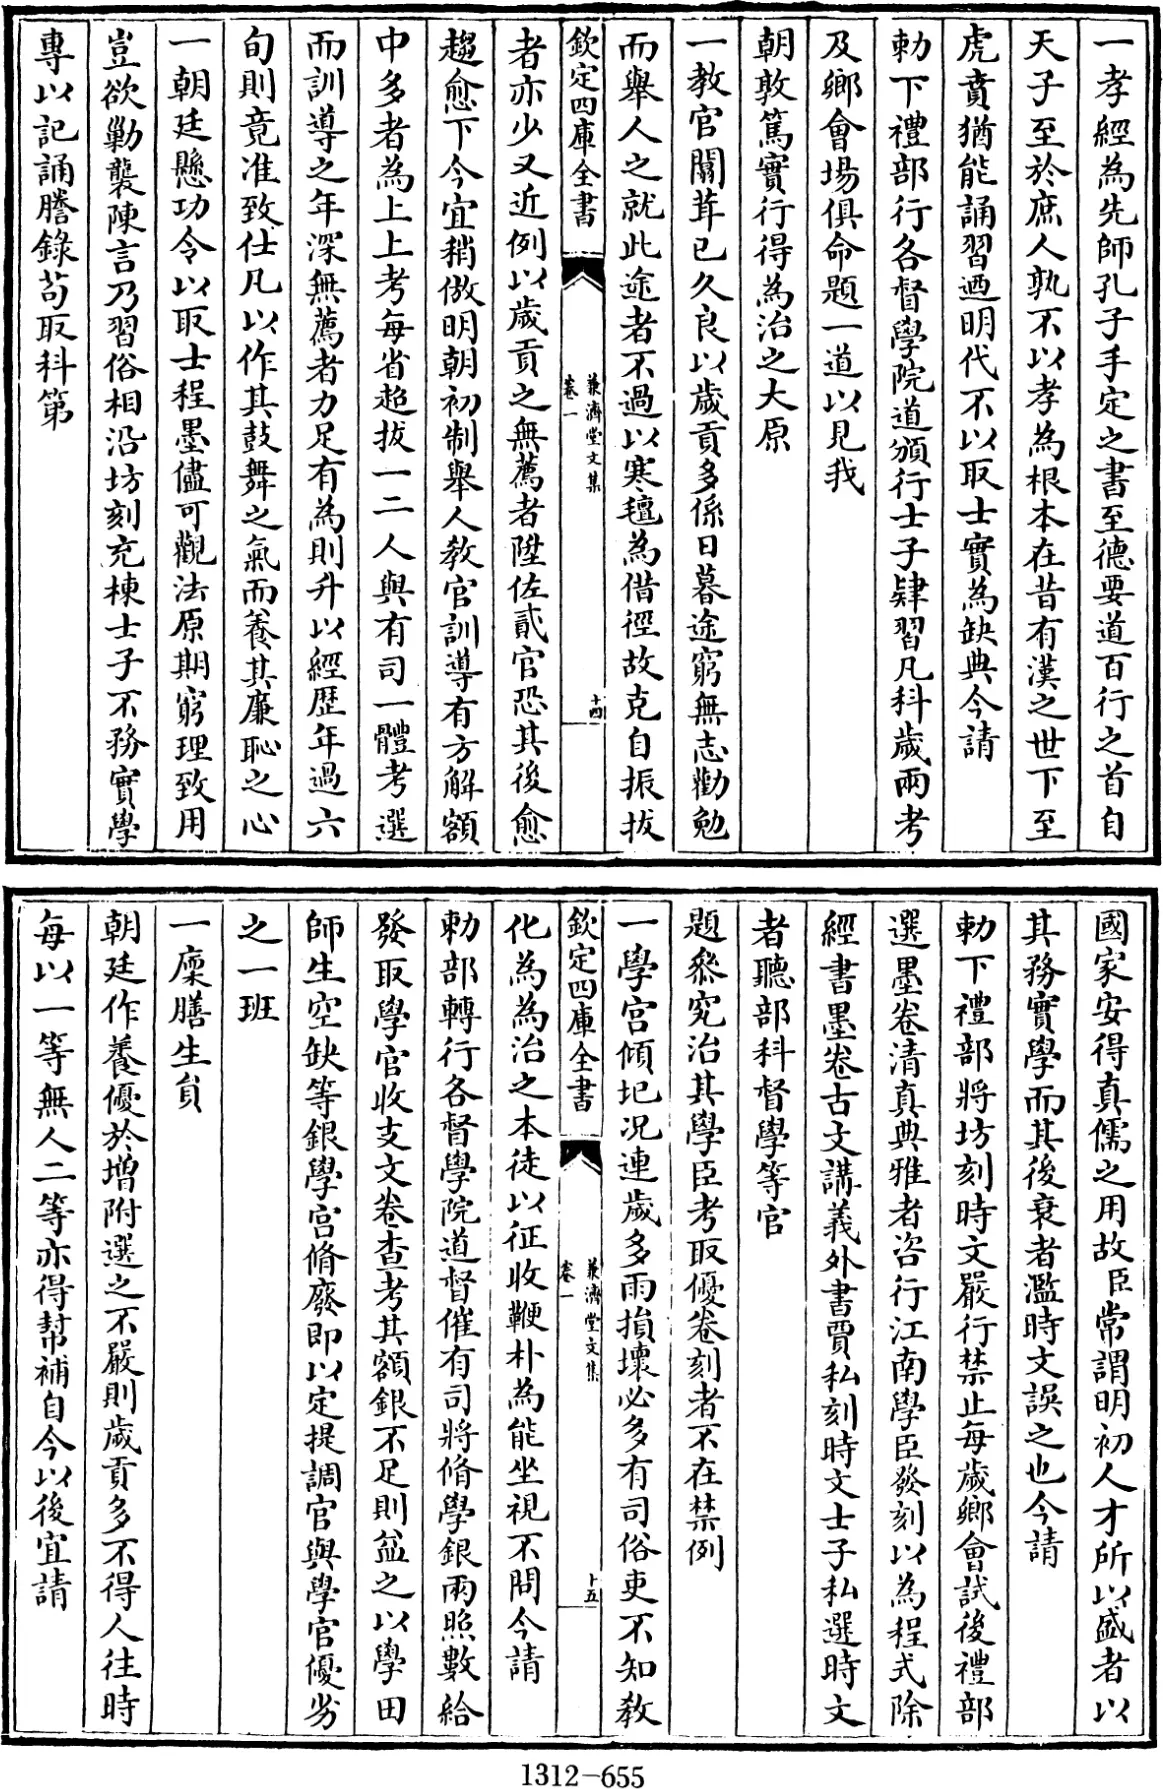 一孝經為先師孔子手定之書至德要道百行之首自
天子至於庶人孰不以孝為根本在昔有漢之世下至
虎賁猶能誦習迺明代不以取士實為缺典今請
勅下禮部行各督學院道頒行士子肄習凡科歲兩考
及鄉會場俱命題一道以見我
朝敦篤實行得為治之大原
一教官闒茸已久良以歲貢多係日暮途窮無志勸勉
而舉人之就此途者不過以寒氊為借徑故克自振拔
欽定四庫全書
兼濟堂文集
卷一
十四
者亦少又近例以歲貢之無薦者陞佐貳官恐其後愈
趨愈下今宜稍倣明朝初制舉人教官訓導有方解額
中多者為上上考每省超拔一二人與有司一體考選
而訓導之年深無薦者力足有為則升以經歷年過六
旬則竟准致仕凡以作其鼓舞之氣而養其廉恥之心
一朝廷懸功令以取士程墨儘可觀法原期窮理致用
豈欲勦襲陳言乃習俗相沿坊刻充棟士子不務實學
專以記誦謄錄苟取科第
國家安得真儒之用故臣常謂明初人才所以盛者以
其務實學而其後衰者濫時文誤之也今請
勅下禮部將坊刻時文嚴行禁止每歲鄉會試後禮部
選墨卷清真典雅者咨行江南學臣發刻以為程式除
經書墨卷古文講義外書賈私刻時文士子私選時文
者聽部科督學等官
題叅究治其學臣考取優卷刻者不在禁例
一學宮傾圮況連歲多雨損壞必多有司俗吏不知教
欽定四庫全書
兼濟堂文集
卷一
十五
化為為治之本徒以征收鞭朴為能坐視不問今請
勅部轉行各督學院道督催有司將脩學銀兩照數給
發取學官收支文卷查考其額銀不足則益之以學田
師生空缺等銀學宮脩廢即以定提調官與學官優劣
之一班
一廩膳生員
朝廷作養優於增附選之不嚴則歲貢多不得人往時
每以一等無人二等亦得幫補自今以後宜請
1312-655